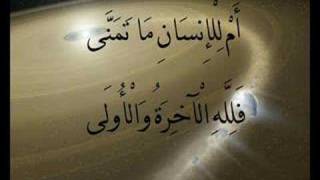 أَمْ لِلْإِنسَانِ مَا تَمَنَّى
فَلِلَّهِ الْآخِرَةُ وَالْأُولَى